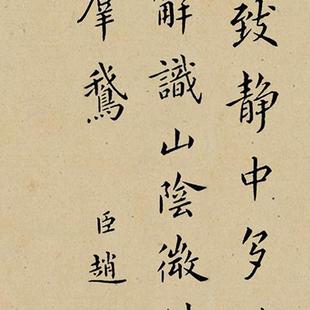 致静中多
解識山陰微
羣鵞
臣趙